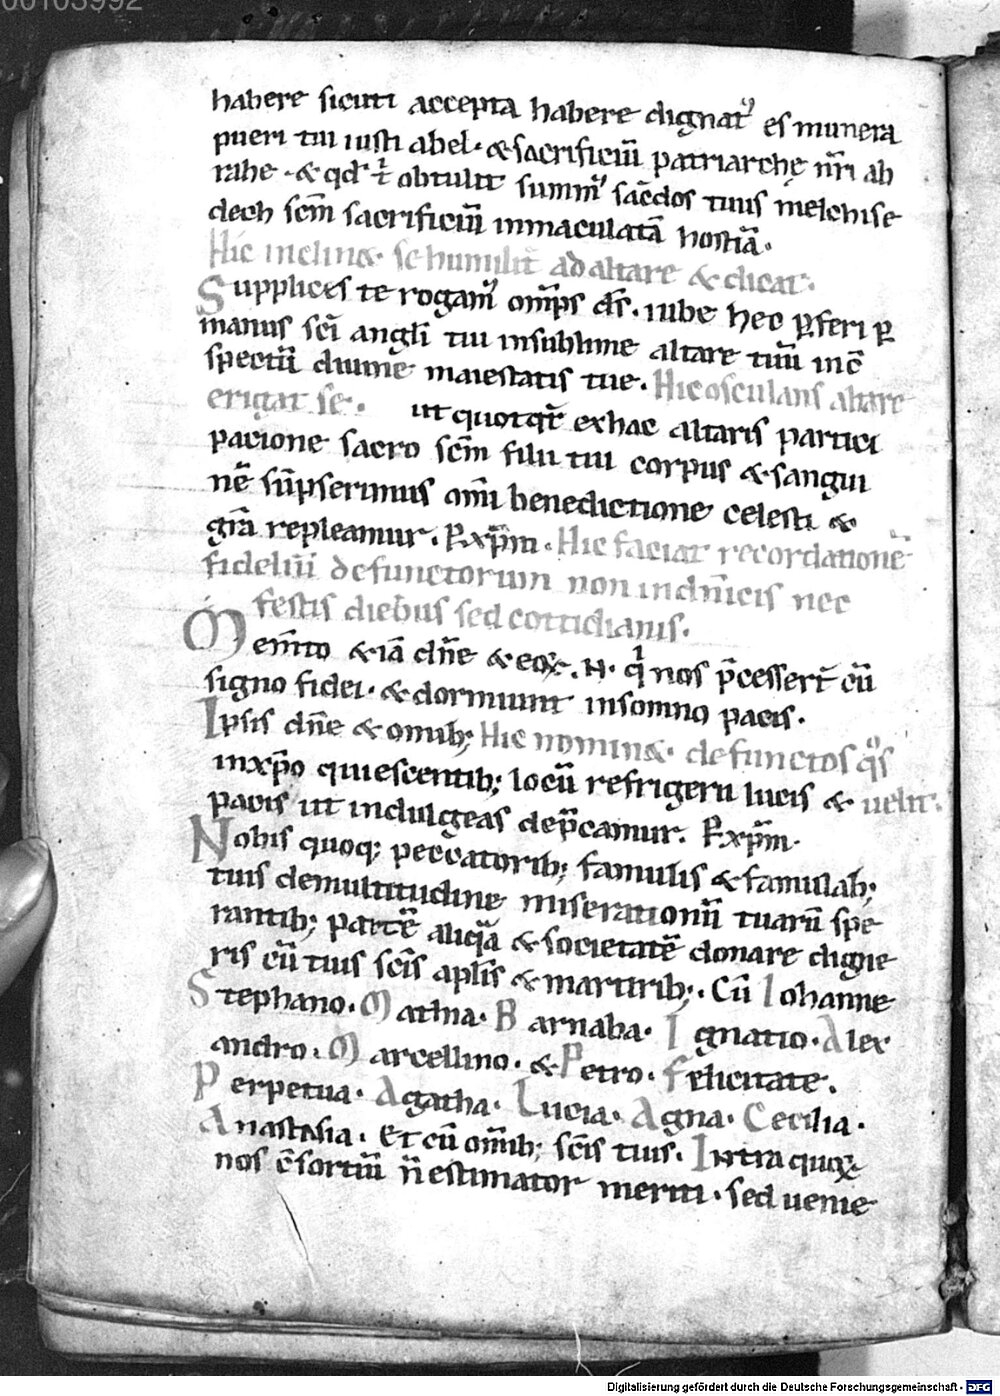 00103992
habere sicuti accepta habere dignatꝰ es munera
pueri tui iusti abel· & sacrificiū patriarche nr̄i ab
rahe· & qđ t̄ obtulit summꝰ sac̄dos tuus melchise
dech sc̄m sacrificiū inmaculatā hostiā·
Hic inclin&· se humiliꝰ ad altare & dicat·
Supplices te rogamꝰ om̄ps ds̄· iube hec ꝑferri ꝑ
manus sc̄i angli tui insublime altare tuū inc̄
spectū diuine maiestatis tue· Hic osculans altare
erigat se· ut quotqt̄ exhac altaris partici
pacione sacro sc̄m filii tui corpus & sangui
nē sūpserimus omi benedictione celesti &
gr̄a repleamur· P xp̄m· Hic faciat recordationē
fideliū defunctorum non indn̄icis nec
festis diebus sed cottidianis·
Mem̄to &iā dn̄e & eoꝝ· N· qͥ nos p̄cessert̄ cū
signo fidei· & dormiunt insomno pacis·
Ipsis dn̄e & omib; Hic nomin&· defunctos qͦs
inxp̄o quiescentib; locū refrigerii lucis & uelit·
pacis ut indulgeas dep̄camur· P xp̄m·
Nobis quoq; peccatorib; famulis & famulab;
tuis demultitudine miserationū tuarū spe
rantib; partē aliqͣ̄ & societatē donare digne
ris cū tuis sc̄is aplīs & martirib;· Cū Iohanne
Stephano· Mathia· Barnaba· Ignatio· Alex
andro· Marcellino· & Petro· Felicitate·
Perpetua· Agatha· Lucia· Agna· Cecilia·
Anastasia· Et cū omīb; sc̄is tuis· Intra quoꝝ
nos c̄sortiū n̄ estimator meriti· sed uenie
Digitalisierung gefördert durch die Deutsche Forschungsgemeinschaft - DFG